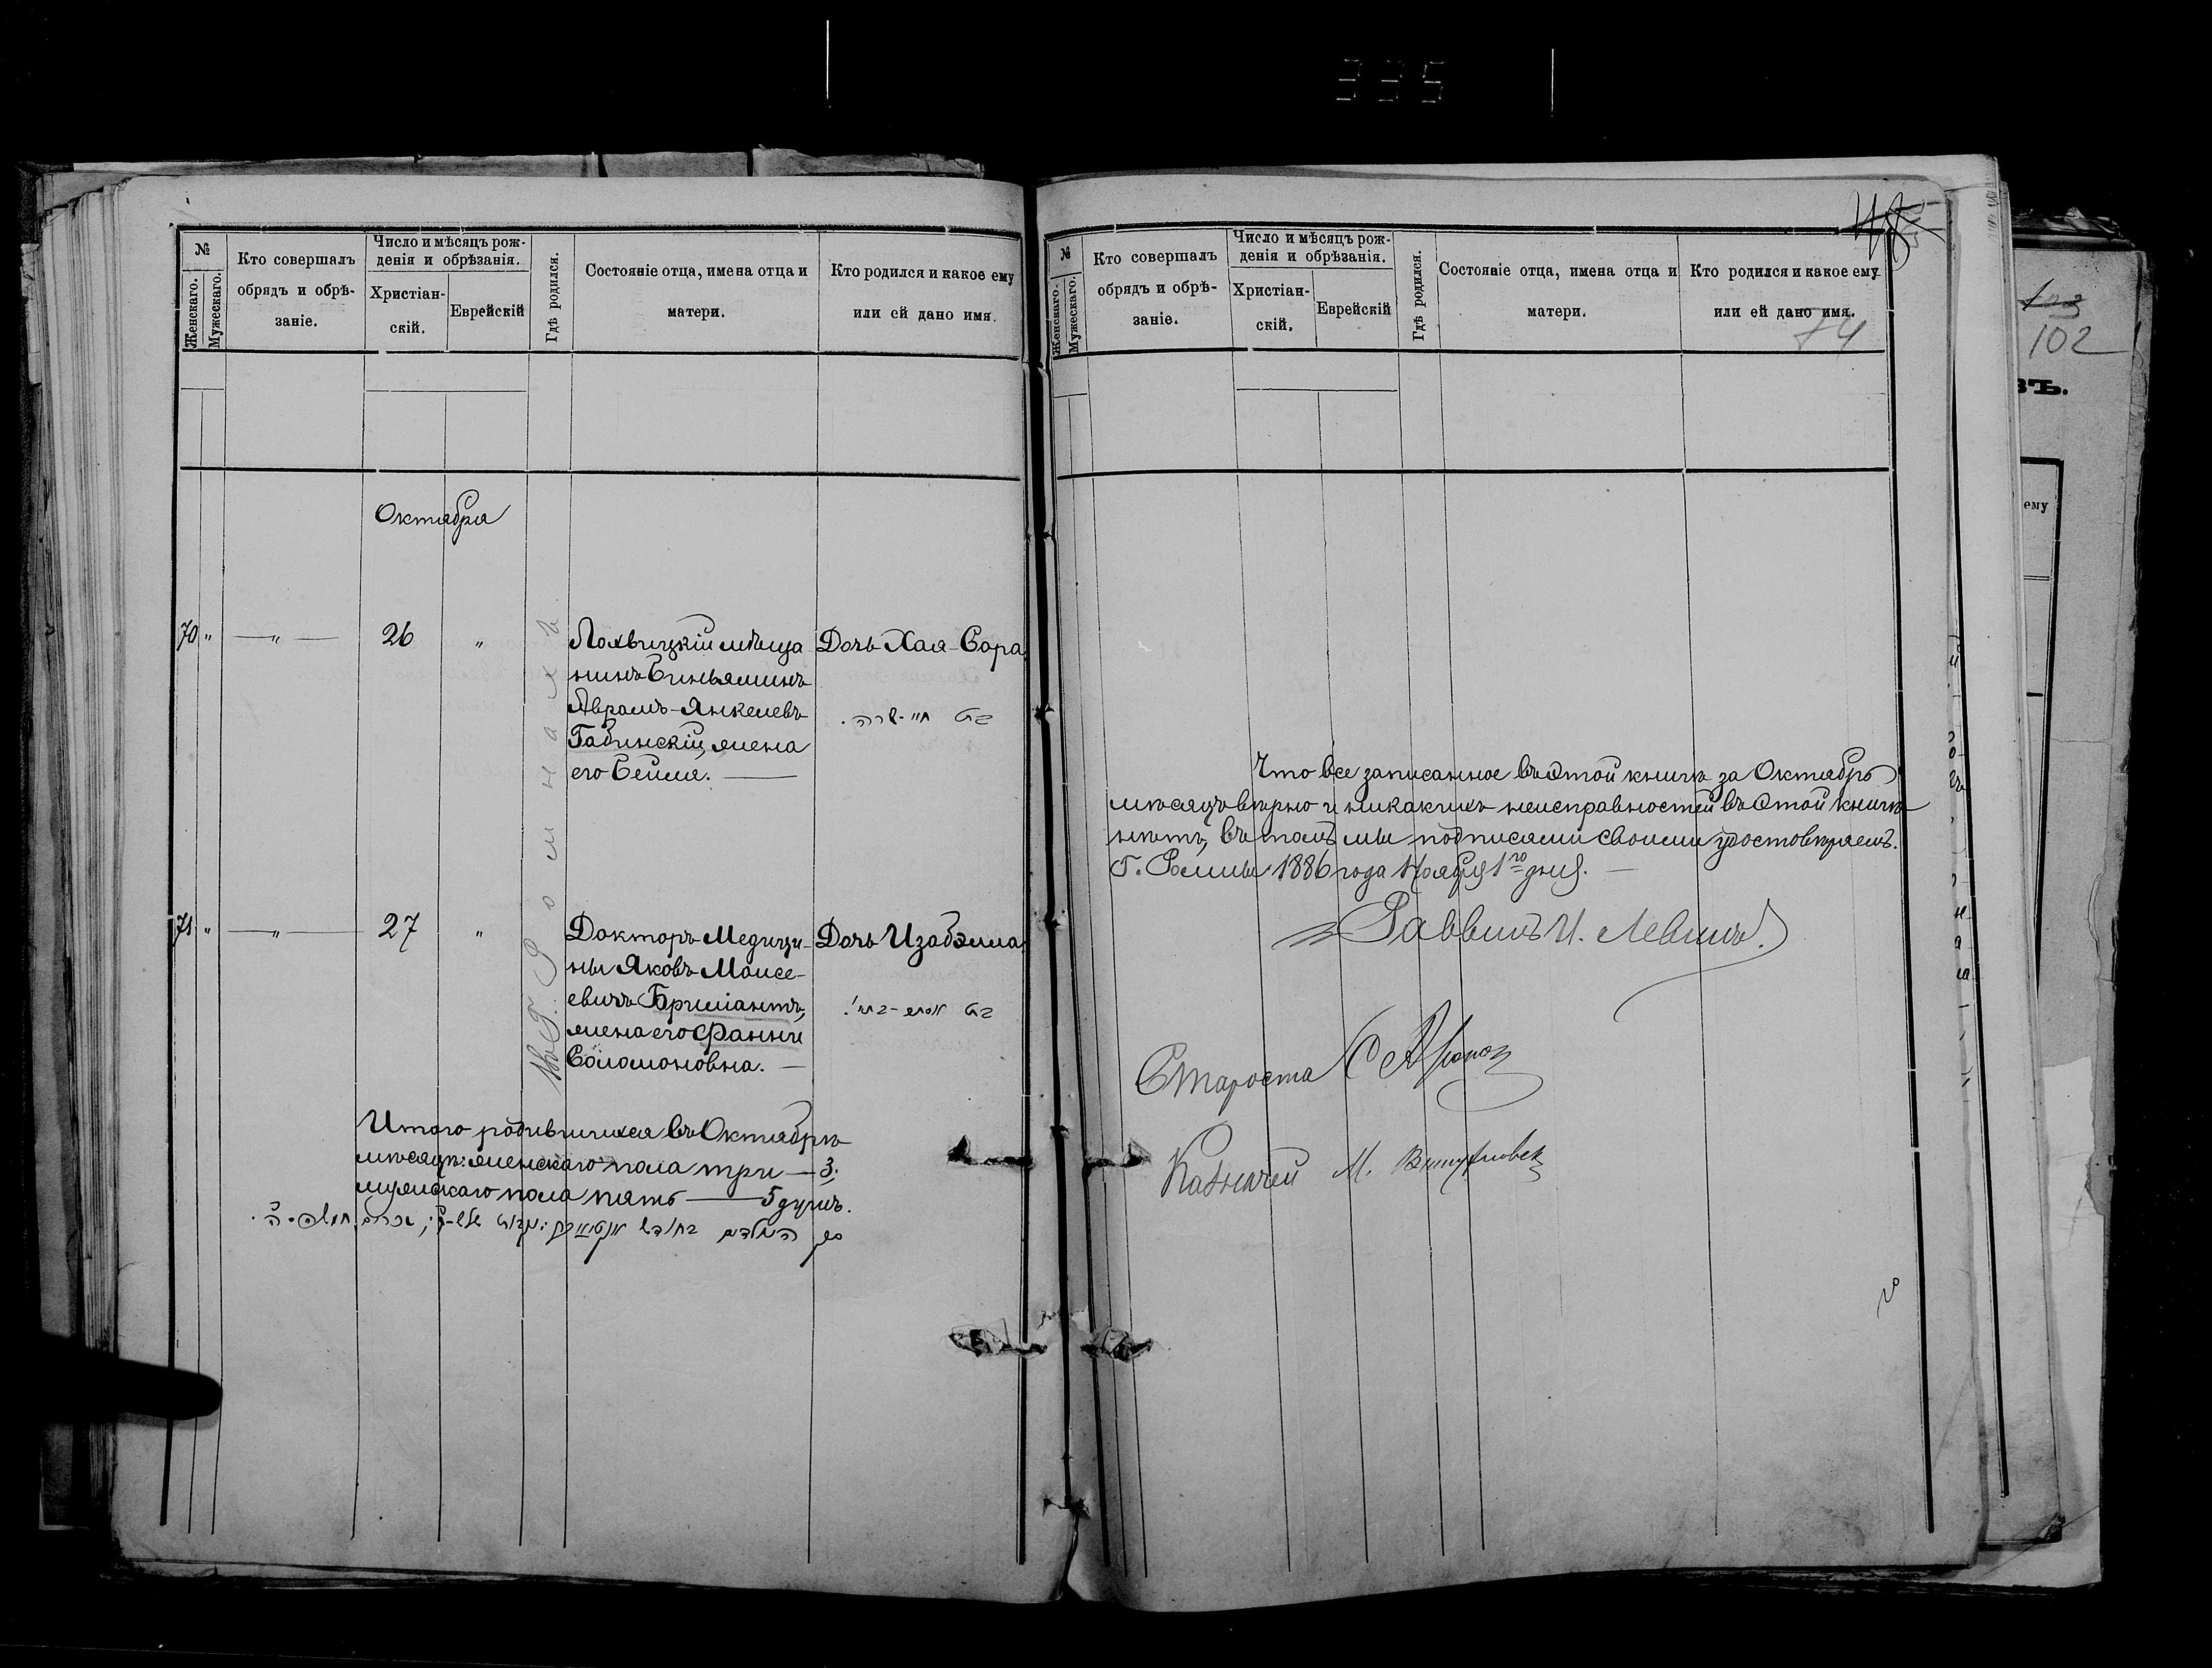 335
№
Женскаго.
Мужескаго.
Кто совершалъ
обрядъ и обрѣ-
заніе.
Число и мѣсяцъ рож-
денія и обрѣзанія.
Христіан-
скій.
Еврейскій
Гдѣ родился.
Состояніе отца, имена отца и
матери.
Кто родился и какое ему
или ей дано имя.
Октября
Въ г. Ромнахъ
70 " — " — 26 "
Лохвицкій мѣща
нинъ Биньяминъ
Абрамъ-Янкелевъ
Габинскій, жена
его Бейля. —
Дочь Хая-Сора
בת חי׳-שרה.
71 " — " — 27 "
Докторъ Медици-
ны Яковъ Моисе-
евичъ Брилліантъ,
жена его Фанни
Соломоновна. —
Дочь Изабэлла
בת
Итого родившихся въ Октябрѣ
мѣсяцѣ: женскаго пола три — 3.
мужскаго пола пять — 5 душъ.
הנולדים בחודש
№
Женскаго.
Мужескаго.
Кто совершалъ
обрядъ и обрѣ-
заніе.
Число и мѣсяцъ рож-
денія и обрѣзанія.
Христіан-
скій.
Еврейскій
Гдѣ родился.
Состояніе отца, имена отца и
матери.
Кто родился и какое ему
или ей дано имя.
74
Что все записанное въ этой книгѣ за Октябрь
мѣсяцъ вѣрно и никакихъ неисправностей въ этой книгѣ
нѣтъ, въ томъ мы подписями своими удостовѣряемъ.
Г. Ромны 1886 года Ноября 1го дня. —
Раввинъ И. Левинъ.
Староста
Казначей М.
102
въ.
ему